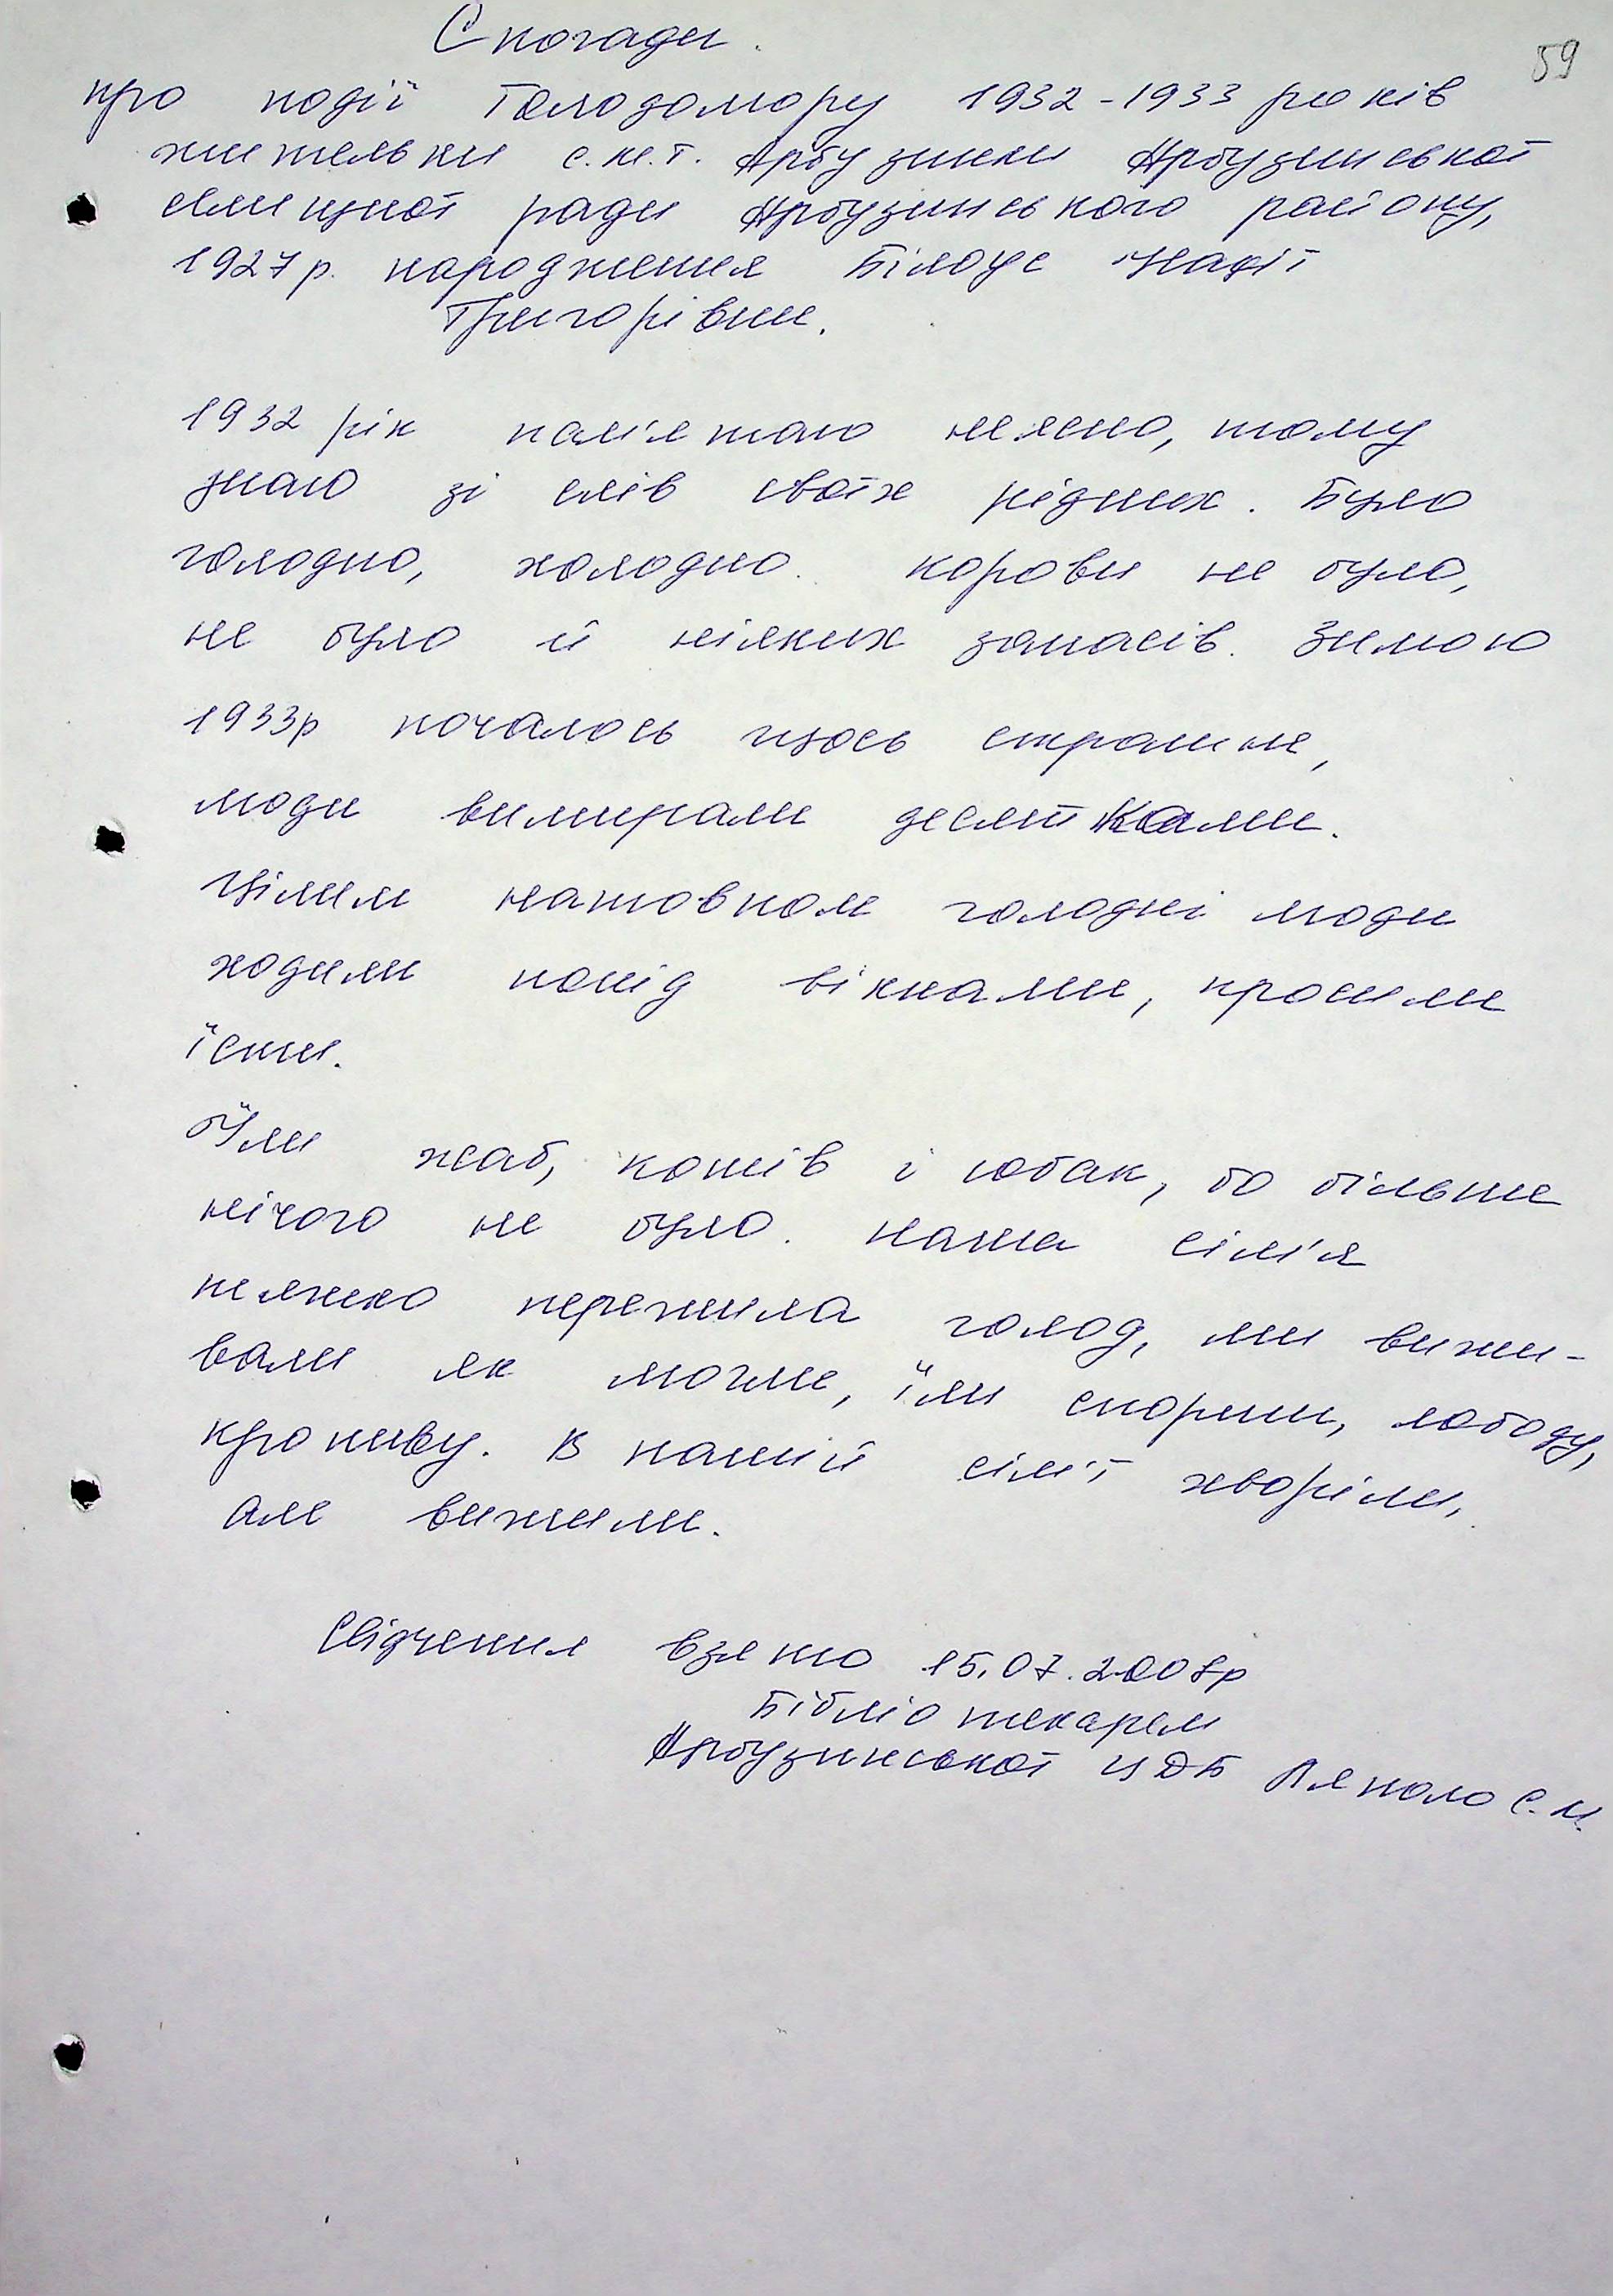 59
Спогади.
про події Голодомору 1932-1933 років
жительки с.м.т. Арбузинки Арбузинської
селищної ради Арбузинського району,
1927 р. народження Білоус Надії
Григорівни.
1932 рік пам'ятаю неясно, тому
знаю зі слів своїх рідних. Було
голодно, холодно. Корови не було,
не було й ніяких запасів. Зимою
1933р почалось щось страшне,
люди вимирали десятками.
Цілим натовпом голодні люди
ходили попід вікнами, просили
їсти.
Їли жаб, котів і собак, бо більше
нічого не було. Наша сім'я
тяжко пережила голод, ми вижи-
вали як могли, їли спориш, лободу,
кропиву. В нашій сім'ї хворіли,
але вижили.
Свідчення взято 15.07.2008р
Бібліотекарем
Арбузинської ЦДБ С.М.